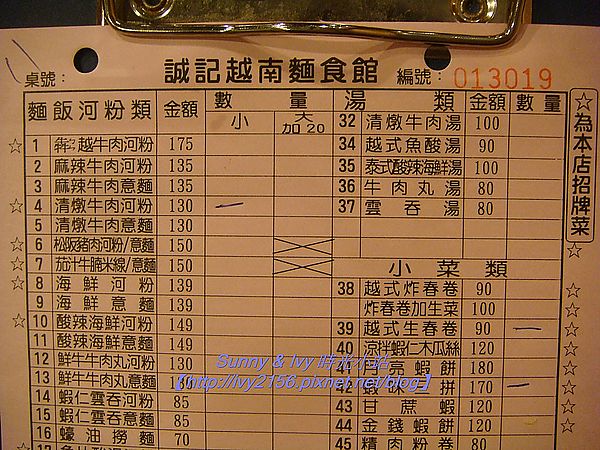 誠記越南麵食館
桌號：
編號：013019
麵飯河粉類 金額 數量 小 大加20
☆ 1 犇越牛肉河粉 175
2 麻辣牛肉河粉 135
3 麻辣牛肉意麵 135
☆ 4 清燉牛肉河粉 130
5 清燉牛肉意麵 130
☆ 6 松阪豬肉河粉/意麵 150
☆ 7 茄汁牛腩米線/意麵 150
☆ 8 海鮮河粉 139
9 海鮮意麵 139
☆ 10 酸辣海鮮河粉 149
11 酸辣海鮮意麵 149
12 鮮牛牛肉丸河粉 130
13 鮮牛牛肉丸意麵
14 蝦仁雲吞河粉 85
15 蝦仁雲吞意麵 85
16 蠔油撈麵 70
湯類 金額 數量
32 清燉牛肉湯 100
34 越式魚酸湯 90
35 泰式酸辣海鮮湯 100
36 牛肉丸湯 80
37 雲吞湯 80
小菜類
38 越式炸春卷 90
炸春卷加生菜 100
39 越式生春卷 90
40 涼拌蝦仁木瓜絲 120
41 月亮蝦餅 180
42 蝦味三拼 170
43 甘蔗蝦 120
44 金錢蝦餅 120
45 精肉粉卷 80
☆為本店招牌菜
Sunny & Ivy 時光小站
【http://ivy2156.pixnet.net/blog】